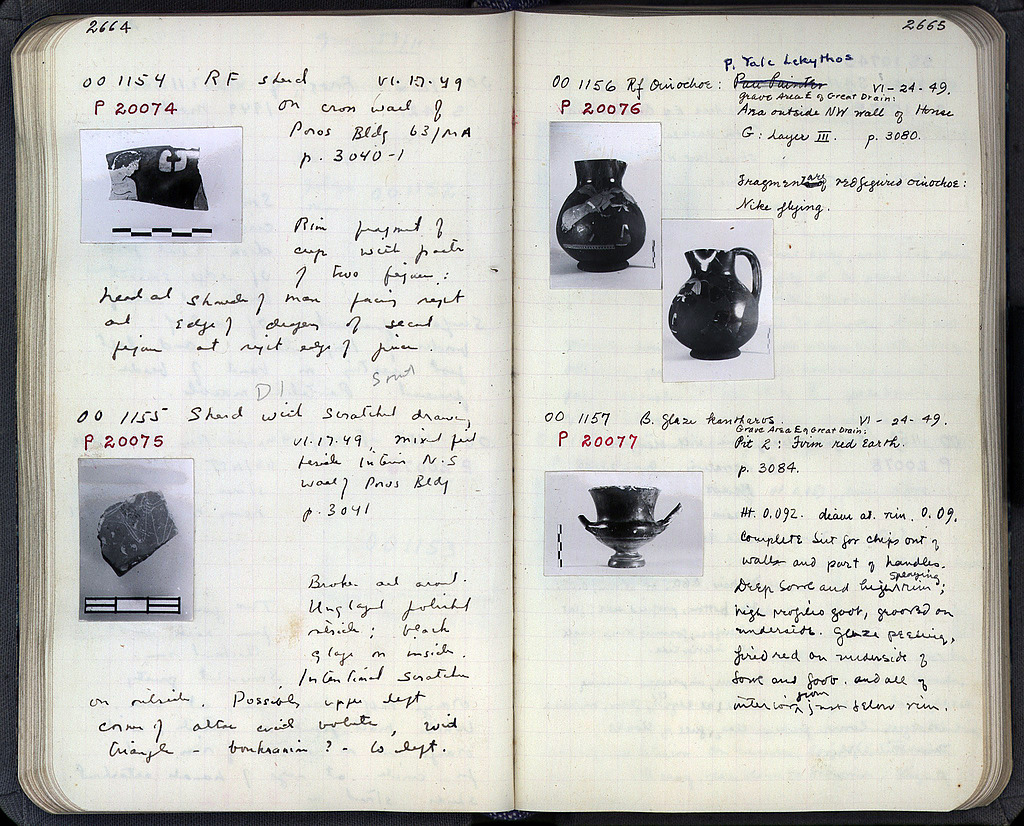 2664
OO 1154 RF sherd VI-17-49
P 20074
On cross wall of
Poros Bldg 63/MA
p. 3040-1
Rim fragment of
cup with parts
of two figures:
head and shoulder of man facing right
and edge of drapery of second
figure at right edge of piece.
D11
OO 1155 Sherd with scratched drawing
P 20075
VI-17-49 mixed fill
beside interior N-S
wall of Poros Bldg
p. 3041
Broken all around.
Unglazed polished
outside; black
glaze on inside.
Intentional scratches
on outside. Possibly upper left
corner of altar with volute, with
triangle boukranion? - to left.
2665
P. Yale Lekythos
OO 1156 Rf Oinochoe: Pan Painter VI-24-49.
P 20076
Grave Area E of Great Drain:
Area outside NW wall of House
G: Layer III. p. 3080.
Fragmentary red figured oinochoe:
Nike flying.
OO 1157 B. Glaze kantharos. VI-24-49.
P 20077
Grave Area E of Great Drain:
Pit 2: Firm red Earth.
p. 3084.
Ht. 0.092. diam at. rim. 0.09.
Complete but for chips out of
walls and part of handles.
Deep bowl and high spreading rim;
high profiled foot, grooved on
underside. Glaze peeling,
fired red on underside of
bowl and foot. and all of
interior from just below rim.